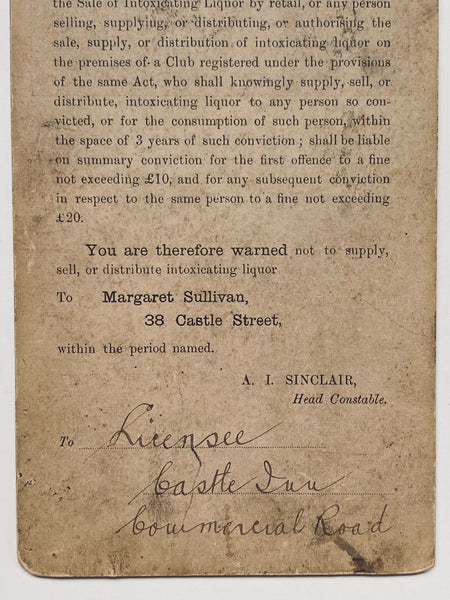 the Sale of Intoxicating Liquor by retail, or any person
selling, supplying, or distributing, or authorising the
sale, supply, or distribution of intoxicating liquor on
the premises of a Club registered under the provisions
of the same Act, who shall knowingly supply, sell, or
distribute, intoxicating liquor to any person so con-
victed, or for the consumption of such person, within
the space of 3 years of such conviction ; shall be liable
on summary conviction for the first offence to a fine
not exceeding £10, and for any subsequent conviction
in respect to the same person to a fine not exceeding
£20.
You are therefore warned not to supply,
sell, or distribute intoxicating liquor
To Margaret Sullivan,
38 Castle Street,
within the period named.
A. I. SINCLAIR,
Head Constable.
To Licensee
Castle Inn
Commercial Road